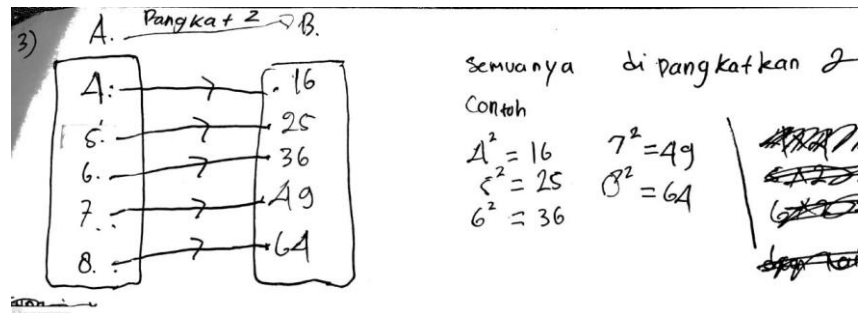 3) A. Pangkat 2 B.
4. . 16
5. . 25
6. . 36
7. . 49
8. . 64
Semuanya di pangkatkan 2
Contoh
4² = 16 7² = 49
5² = 25 8² = 64
6² = 36